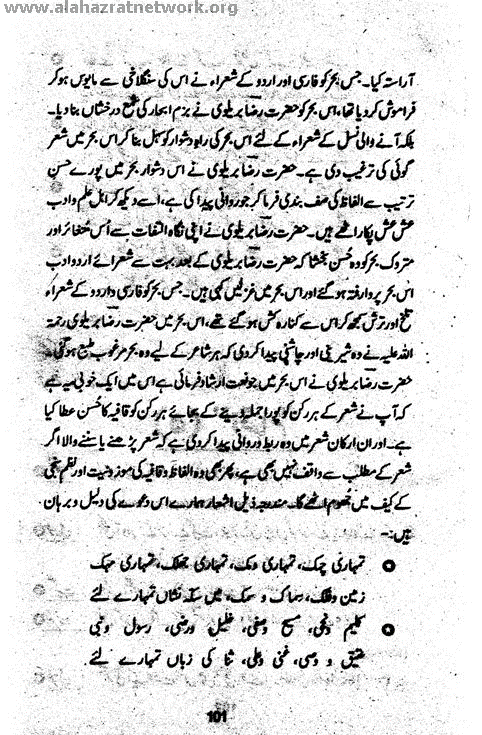 www.alahazratnetwork.org
آراستہ کیا۔ جس بحر کو فارسی اور اردو کے شعراء نے اس کی سنگلاخی سے مایوس ہو کر
فراموش کر دیا تھا، اس بحر کو حضرت رضا بریلوی نے بزم ابحار کی شمع درخشاں بنا دیا۔
بلکہ آنے والی نسل کے شعراء کے لئے اس بحر کی راہ دشوار کو سہل بنا کر اس بحر میں شعر
گوئی کی ترغیب دی ہے۔ حضرت رضا بریلوی نے اس دشوار بحر میں پورے حسن
ترتیب سے الفاظ کی صف بندی فرما کر جو روانی پیدا کی ہے، اسے دیکھ کر اہل علم و ادب
عش عش پکار اٹھے ہیں۔ حضرت رضا بریلوی نے اپنی نگاہ التفات سے اُس متغائر اور
متروک بحر کو وہ حُسن بخشا کہ حضرت رضا بریلوی کے بعد بہت سے شعرائے اردو ادب
اس بحر پر وارفتہ ہو گئے اور اس بحر میں غزلیں کہی ہیں۔ جس بحر کو فارسی و اردو کے شعراء
تلخ اور ترش سمجھ کر اس سے کنارہ کش ہو گئے تھے، اس بحر میں حضرت رضا بریلوی رحمۃ
اللہ علیہ نے وہ شیرینی اور چاشنی پیدا کر دی کہ ہر شاعر کے لیے وہ بحر مرغوب طبع ہو گئی۔
حضرت رضا بریلوی نے اس بحر میں جو نعت ارشاد فرمائی ہے اس میں ایک خوبی یہ ہے
کہ آپ نے شعر کے ہر رکن کو پورا جملہ دینے کے بجائے ہر رکن کو قافیہ کا حُسن عطا کیا
ہے۔ اور ان ارکان شعر میں وہ ربط و روانی پیدا کر دی ہے کہ شعر پڑھنے یا سننے والا اگر
شعر کے مطلب سے واقف نہیں بھی ہے، پھر بھی وہ الفاظ و قافیہ کی موزونیت اور نظم سنجی
کے کیف میں جھوم اٹھے گا۔ مندرجہ ذیل اشعار ہمارے اس دعوے کی دلیل و برہان
ہیں:-
تمہاری چمک، تمہاری دمک، تمہاری جھلک، تمہاری مہک
زمین و فلک، سماک و سمک، میں سکہ نشاں تمہارے لئے
کلیم و نجی، مسیح و صفی، خلیل و رضی، رسول و نبی
عتیق و وصی، غنی و علی، ثنا کی زباں تمہارے لئے
101